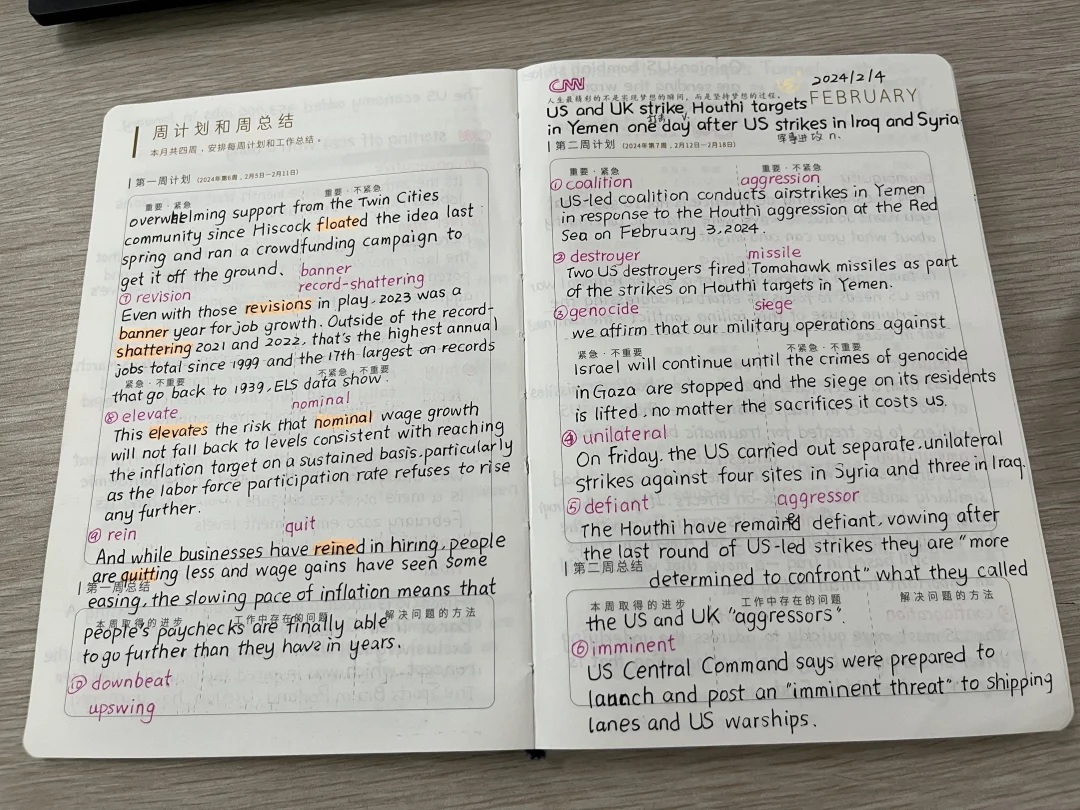 周计划和周总结
本月共四周，安排每周计划和工作总结。
第一周计划 (2024年第6周，2月5日—2月11日)
重要·紧急 重要·不紧急
overwhelming support from the Twin Cities
community since Hiscock floated the idea last
spring and ran a crowdfunding campaign to
get it off the ground.
banner
⑦ revision record-shattering
Even with those revisions in play, 2023 was a
banner year for job growth. Outside of the record-
shattering 2021 and 2022, that's the highest annual
jobs total since 1999 and the 17th largest on records
紧急·不重要 不紧急·不重要
that go back to 1939, ELS data show.
⑧ elevate nominal
This elevates the risk that nominal wage growth
will not fall back to levels consistent with reaching
the inflation target on a sustained basis, particularly
as the labor force participation rate refuses to rise
any further.
⑨ rein quit
And while businesses have reined in hiring, people
are quitting less and wage gains have seen some
第一周总结
easing, the slowing pace of inflation means that
本周取得的进步 工作中存在的问题 解决问题的方法
people's paychecks are finally able
to go further than they have in years.
⑩ downbeat
upswing
CNN 2024/2/4
人生最精彩的不是实现梦想的瞬间，而是坚持梦想的过程。
FEBRUARY
US and UK strike, Houthi targets
打击 v.
in Yemen one day after US strikes in Iraq and Syria
军事进攻 n.
第二周计划 (2024年第7周，2月12日—2月18日)
重要·紧急 重要·不紧急
① coalition aggression
US-led coalition conducts airstrikes in Yemen
in response to the Houthi aggression at the Red
Sea on February 3, 2024.
② destroyer missile
Two US destroyers fired Tomahawk missiles as part
of the strikes on Houthi targets in Yemen.
③ genocide siege
we affirm that our military operations against
紧急·不重要 不紧急·不重要
Israel will continue until the crimes of genocide
in Gaza are stopped and the siege on its residents
is lifted, no matter the sacrifices it costs us.
④ unilateral
On friday, the US carried out separate, unilateral
strikes against four sites in Syria and three in Iraq.
⑤ defiant aggressor
The Houthi have remained defiant, vowing after
the last round of US-led strikes they are "more
第二周总结
determined to confront" what they called
本周取得的进步 工作中存在的问题 解决问题的方法
the US and UK "aggressors".
⑥ imminent
US Central Command says were prepared to
launch and post an "imminent threat" to shipping
lanes and US warships.